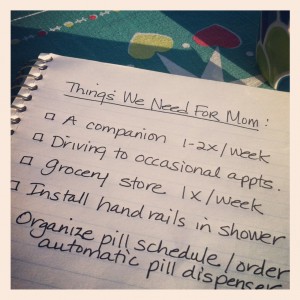 Things We Need For Mom:
A companion 1-2x/week
Driving to occasional appts.
grocery store 1x/week
Install hand rails in shower
Organize pill schedule/order
automatic pill dispenser